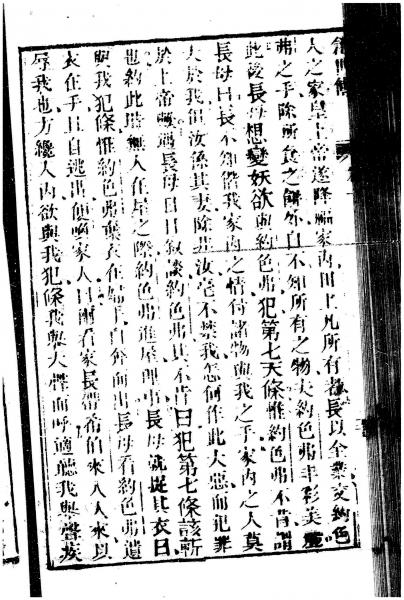 人之家皇上帝遂降福家內田上凡所有家長以全業交約色
弗之手除所食之餅外自不知所有之物夫約色弗丰彩美麗
此後長母想變妖欲與約色弗犯第七天條惟約色弗不肯謂
長母曰長不知偕我家內之情付諸物與我之手家內之人莫
大於我但汝係其妻除非汝毫不禁我怎何作此大惡而犯罪
於上帝焉適長母日日敘談約色弗其不肯曰犯第七條該斬
也約此時無人在屋之際約色弗進屋理事長母就捉其衣曰
與我犯條惟約色弗棄衣在婦手自奔而出長母看約色弗遺
衣在手且自逃出便喚家人曰爾看家長帶希伯來人入來以
辱我也方纔入內欲與我犯條我與大聲而呼適聽我與聲疾